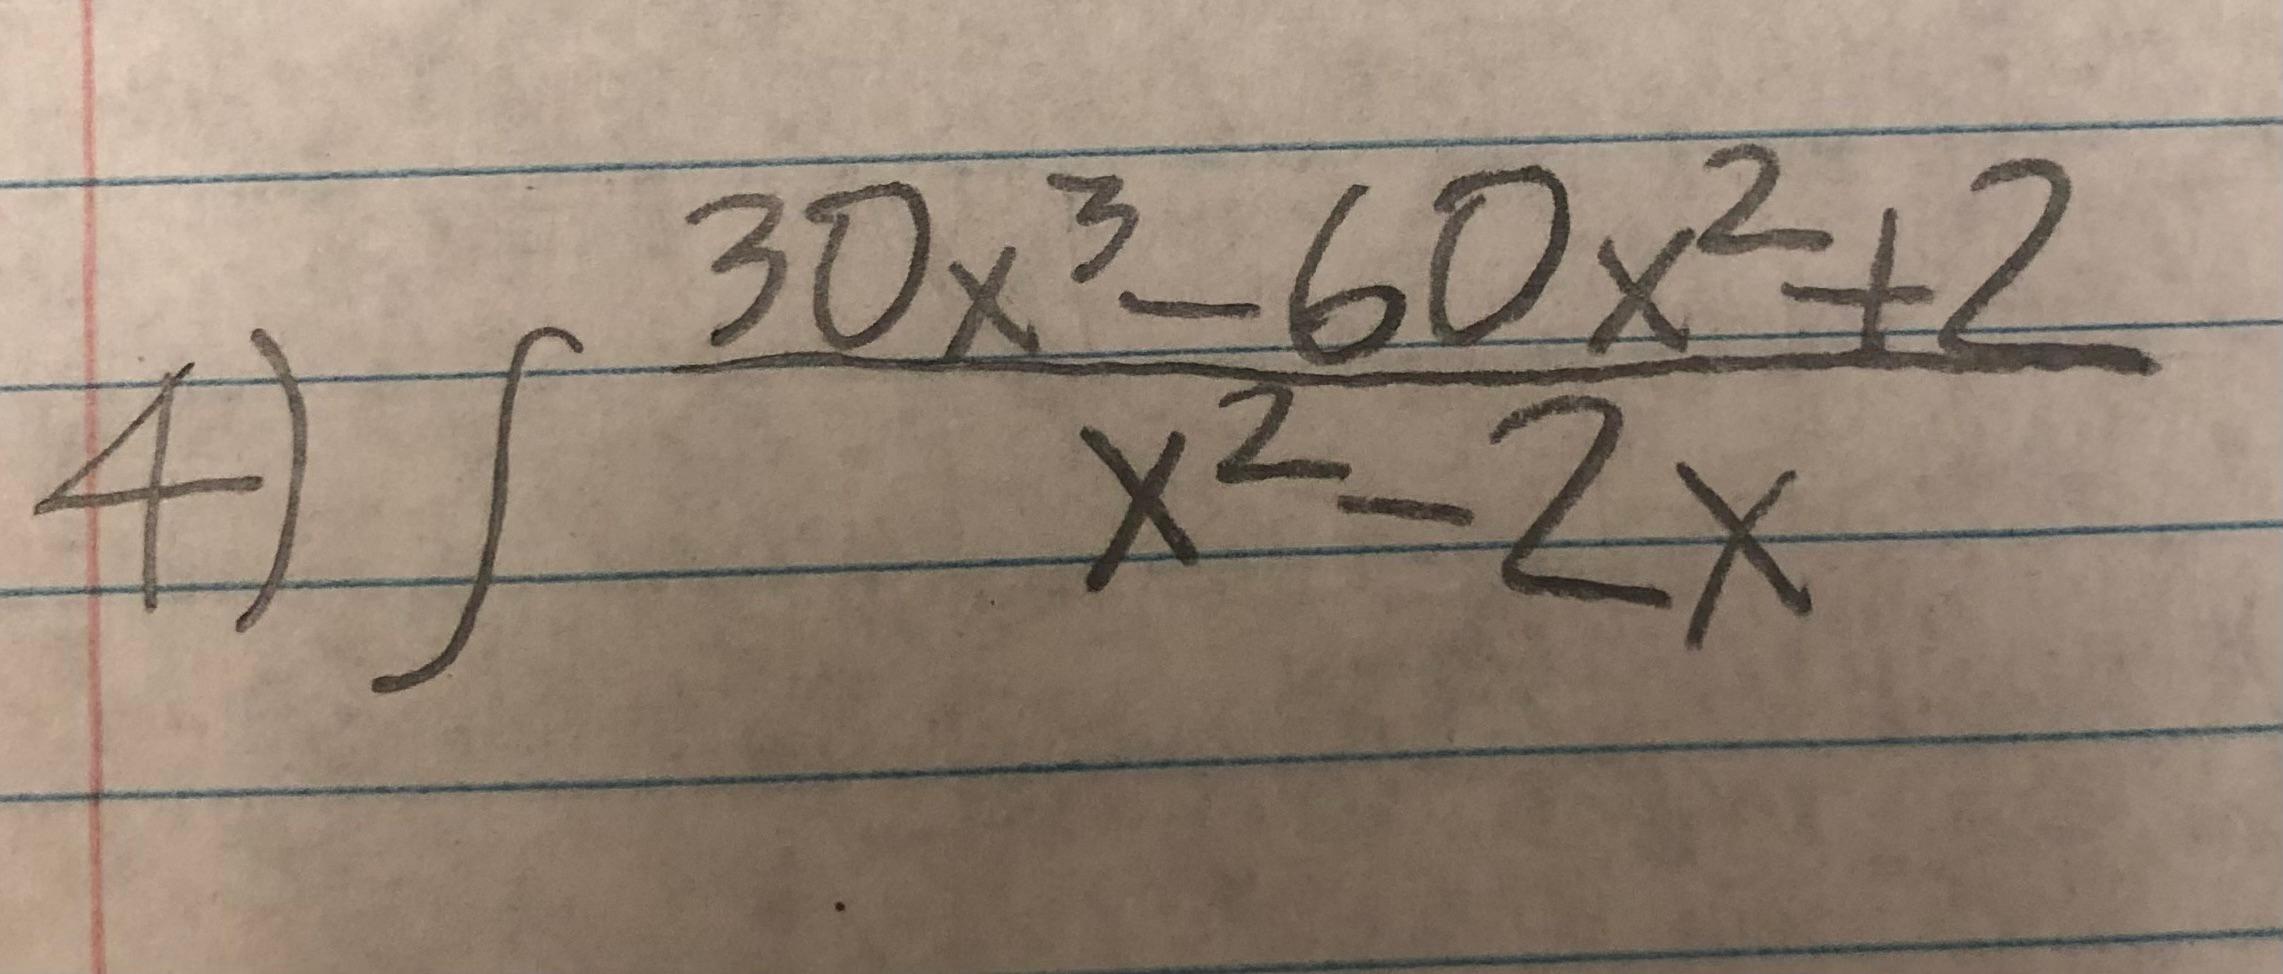 4) ∫ (30x³ - 60x² + 2)/(x² - 2x)